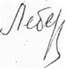 Лебез